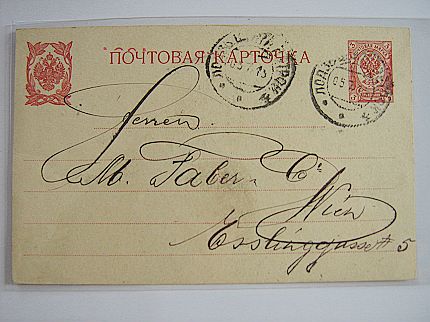 ПОЧТОВАЯ КАРТОЧКА
Herren
M. Faber & Co
Wien
Esslinggasse № 5